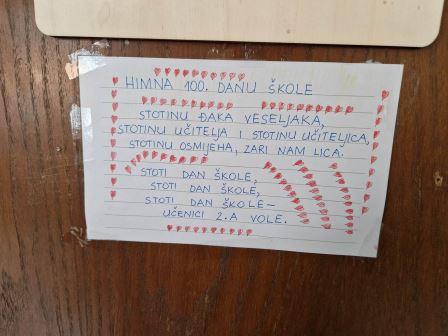 HIMNA 100. DANU ŠKOLE
STOTINU ĐAKA VESELJAKA,
STOTINU UČITELJA I STOTINU UČITELJICA,
STOTINU OSMIJEHA, ZARI NAM LICA.
STOTI DAN ŠKOLE,
STOTI DAN ŠKOLE,
STOTI DAN ŠKOLE-
UČENICI 2.A VOLE.